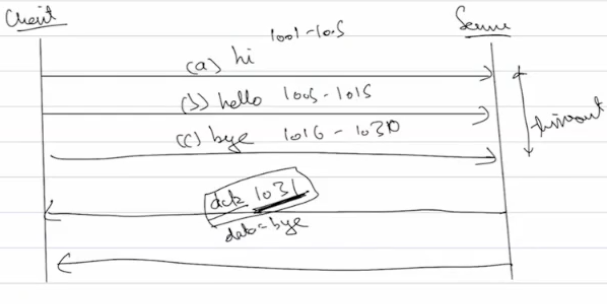 Client
Server
1001-1005
(a) hi
(b) hello 1005-1015
(c) bye 1016 - 1030
timeout
ack 1031
data=bye